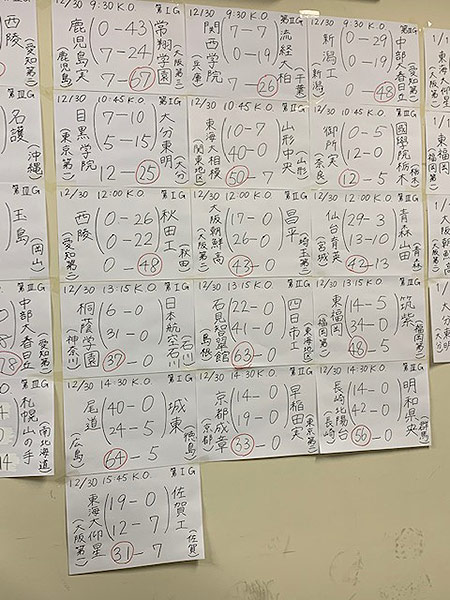 12/30 9:30 K.O. 第ⅠG
鹿児島実
(鹿児島)
0-43
7-24
7-67
常翔学園
(大阪第三)
12/30 9:30 K.O. 第ⅡG
関西学院
(兵庫)
7-7
0-19
7-26
流経大柏
(千葉)
12/30 9:30 K.O. 第ⅢG
新潟工
(新潟)
0-29
0-19
0-48
中部大春日丘
(愛知第一)
12/30 10:45 K.O. 第ⅠG
目黒学院
(東京第一)
7-10
5-15
12-25
大分東明
(大分)
12/30 10:45 K.O. 第ⅡG
東海大相模
(関東地区)
10-7
40-0
50-7
山形中央
(山形)
12/30 10:45 K.O. 第ⅢG
御所実
(奈良)
0-5
12-0
12-5
國學院栃木
(栃木)
12/30 12:00 K.O. 第ⅠG
西陵
(愛知第二)
0-26
0-22
0-48
秋田工
(秋田)
12/30 12:00 K.O. 第ⅡG
大阪朝鮮高
(大阪第二)
17-0
26-0
43-0
昌平
(埼玉第二)
12/30 12:00 K.O. 第ⅢG
仙台育英
(宮城)
29-3
13-10
42-13
青森山田
(青森)
12/30 13:15 K.O. 第ⅠG
桐蔭学園
(神奈川)
6-0
31-0
37-0
日本航空石川
(石川)
12/30 13:15 K.O. 第ⅡG
石見智翠館
(島根)
22-0
41-0
63-0
四日市工
(東海地区)
12/30 13:15 K.O. 第ⅢG
東福岡
(福岡第一)
14-5
34-0
48-5
筑紫
(福岡第二)
12/30 14:30 K.O. 第ⅠG
尾道
(広島)
40-0
24-5
64-5
城東
(徳島)
12/30 14:30 K.O. 第ⅡG
京都成章
(京都)
14-0
19-0
33-0
早稲田実
(東京第二)
12/30 14:30 K.O. 第ⅢG
長崎北陽台
(長崎)
14-0
42-0
56-0
明和県央
(群馬)
12/30 15:45 K.O. 第ⅠG
東海大仰星
(大阪第一)
19-0
12-7
31-7
佐賀工
(佐賀)
西陵
(愛知第二)
第ⅢG
名護
(沖縄)
第ⅢG
玉島
(岡山)
第ⅢG
中部大春日丘
(愛知第一)
第ⅢG
札幌山の手
(南北海道)